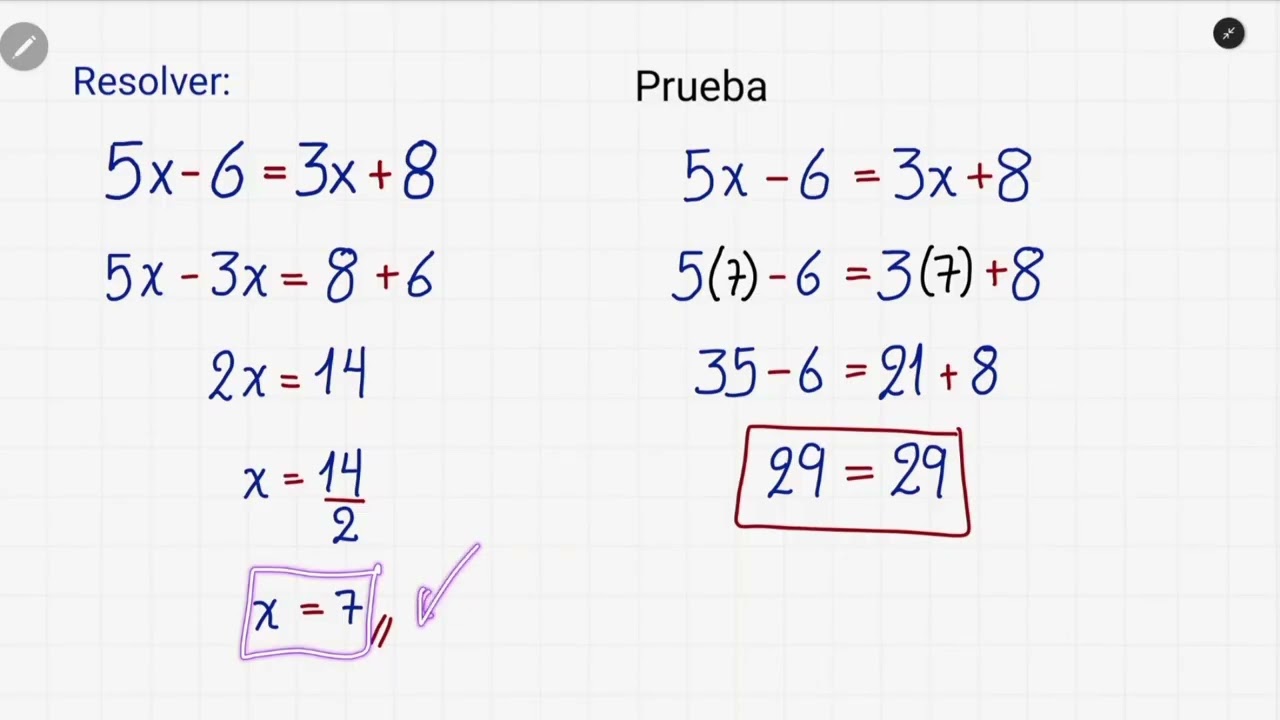 Resolver:
5x - 6 = 3x + 8
5x - 3x = 8 + 6
2x = 14
x = 14/2
x = 7
Prueba
5x - 6 = 3x + 8
5(7) - 6 = 3(7) + 8
35 - 6 = 21 + 8
29 = 29